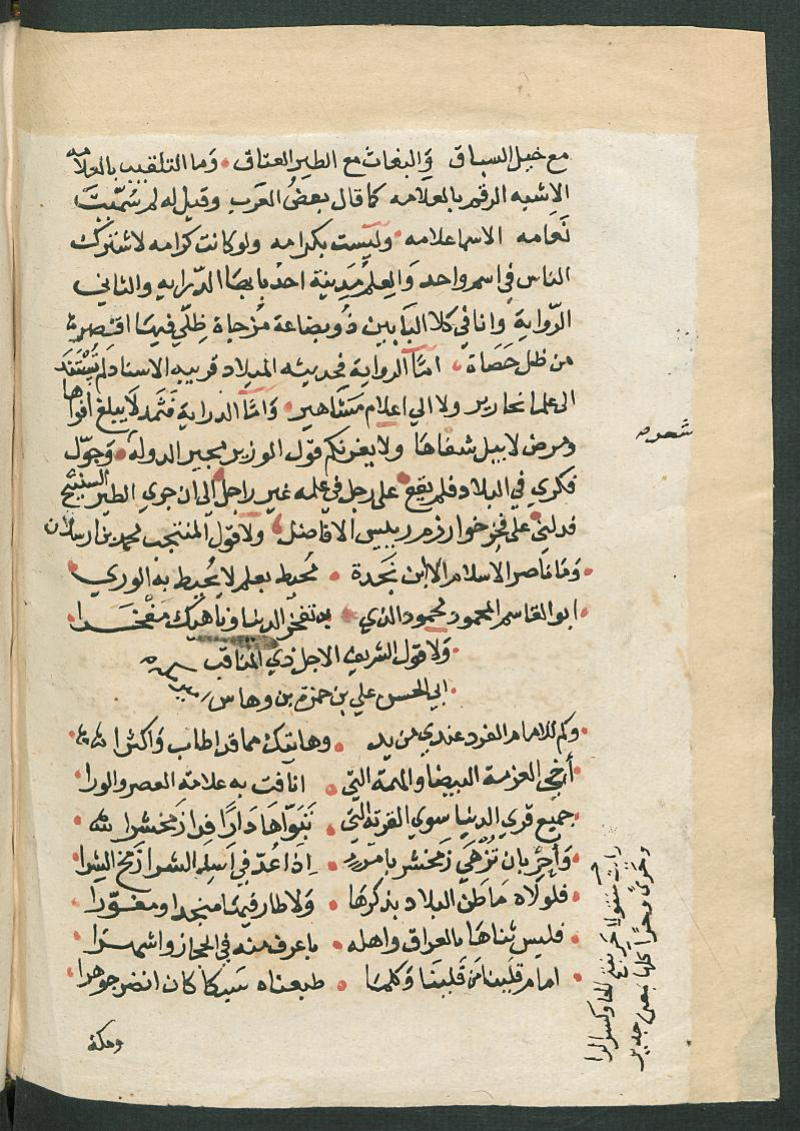 مع خيل السباق وَالبغاث مع الطير العتاق وَما التلقيب بالعلامه
الا شبه الرقم بالعلامه كما قال بعضُ العَرب وقيل له لم سُمّيتَ
نَعامه الاسما علامه وليست بكرامه ولو كانت كرامه لاشترك
الناس في اسم واحد وَالعِلمُ مَدينة احدُ بابيهَا الدّرايه والثاني
الرّواية وانا في كلا البَابين ذو بضاعة مُزجاة ظِلّي فيهَا اقصر
من ظل حَصَاة امّا الرواية فحديثه الميلاد قريبه الاسناد لم تَسْتنِد
الى علما نحارير ولا الي اعلام مَشاهير وَامّا الدراية فثمد لا يبلغ افواها
وبرض لا يبل شفاهَا ولا يغرنكم قول الوزير مجير الدولة وَجوّل
شعره
فكري في البلاد فلم يقع على رجل في علمه غير راجل الى ان جري الطير السنيح
فدلني على فخر خوارزم رييس الافاضل ولا قول المنتجب محمد بن ارسلان
وَمَا ناصر الاسلام الا ابن نَجدة مُحيط بعلم لا يُحيط به الوري
ابو القاسم المحمود محمود الذي به تفخر الدنيا وناهيك مفخرا
وَلا قول الشريف الاجل ذي المناقب
ابي الحسن علي بن حمزة بن وهاس
وكم للامام الفرد عندي من يد وهاتيك مما قد اطاب وَاكثرا
أخي العزمة البيضا والهمة التي انافت به علامة العصر والورا
جميع قري الدنيا سوي القرية التي تَبَوّاهَا دَارًا فِدا زَمخشرا
وَأحْرِ بان تُزْهَي زمخشر بامرء اذا عُدّ في اسد الشرا زمخ الشرا
فلولاه مَا طن البلاد بذكرها وَلا طار فيها منجدا ومغوّرا
فليس ثناهَا بالعراق واهله باعرف منه في الحجاز واشهرا
امام قلبنا من قلبنا وَكلما طبعناه سَبكا كان انضر جوهرا
وحري وحرًا كلها بمعنى جدير
ومكة